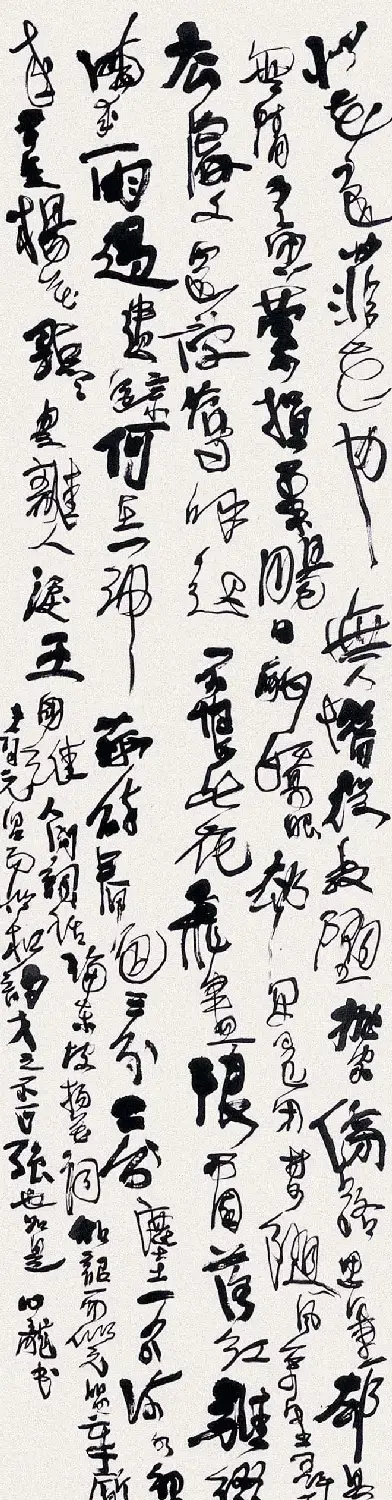 似花還似非花也無人惜從教墜拋家傍路思量却是
無情有思縈損柔腸困酣嬌眼欲開還閉夢隨風萬里尋郎
去處又還被鶯呼起不恨此花飛盡恨西園落紅難綴
曉來雨過遺蹤何在一池萍碎春色三分二分塵土一分流水細
看來不是楊花點點是離人淚王
國維人間詞話論東坡楊花詞和韻而似元唱章
元唱而似和韻才之不可強也如是龍書